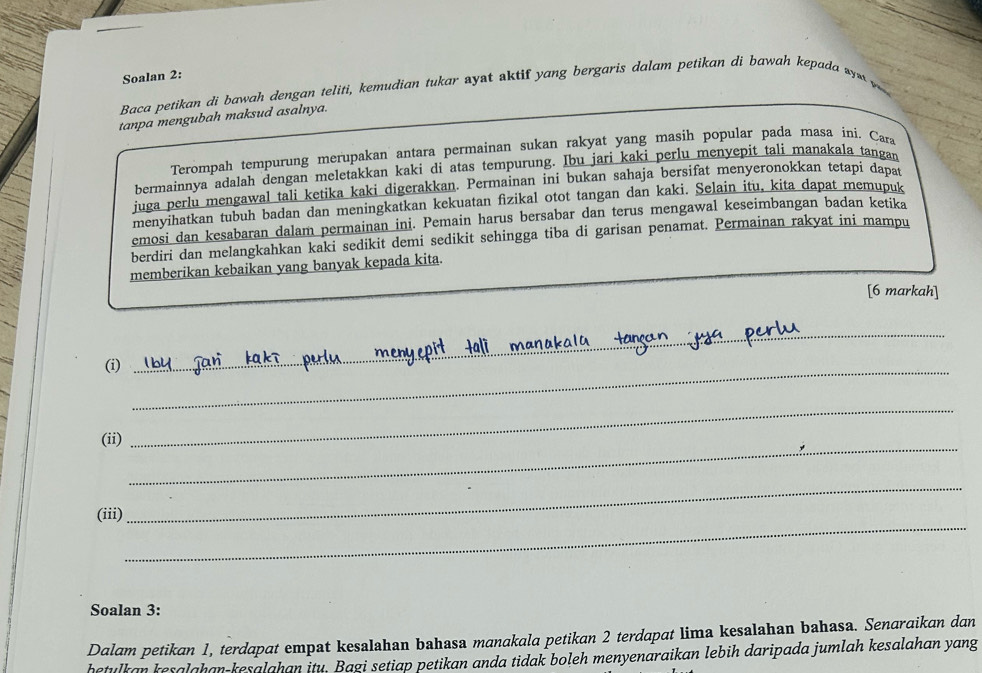 Soalan 2:
Baca petikan di bawah dengan teliti, kemudian tukar ayat aktif yang bergaris dalam petikan di bawah kepada ayat
tanpa mengubah maksud asalnya.
Terompah tempurung merupakan antara permainan sukan rakyat yang masih popular pada masa ini. Cara
bermainnya adalah dengan meletakkan kaki di atas tempurung. Ibu jari kaki perlu menyepit tali manakala tangan
juga perlu mengawal tali ketika kaki digerakkan. Permainan ini bukan sahaja bersifat menyeronokkan tetapi dapat
menyihatkan tubuh badan dan meningkatkan kekuatan fizikal otot tangan dan kaki. Selain itu, kita dapat memupuk
emosi dan kesabaran dalam permainan ini. Pemain harus bersabar dan terus mengawal keseimbangan badan ketika
berdiri dan melangkahkan kaki sedikit demi sedikit sehingga tiba di garisan penamat. Permainan rakyat ini mampu
memberikan kebaikan yang banyak kepada kita.
[6 markah]
(i) Ibu jari kaki perlu menyepit tali manakala tangan juga perlu
(ii)
(iii)
Soalan 3:
Dalam petikan 1, terdapat empat kesalahan bahasa manakala petikan 2 terdapat lima kesalahan bahasa. Senaraikan dan
betulkan kesalahan-kesalahan itu. Bagi setiap petikan anda tidak boleh menyenaraikan lebih daripada jumlah kesalahan yang